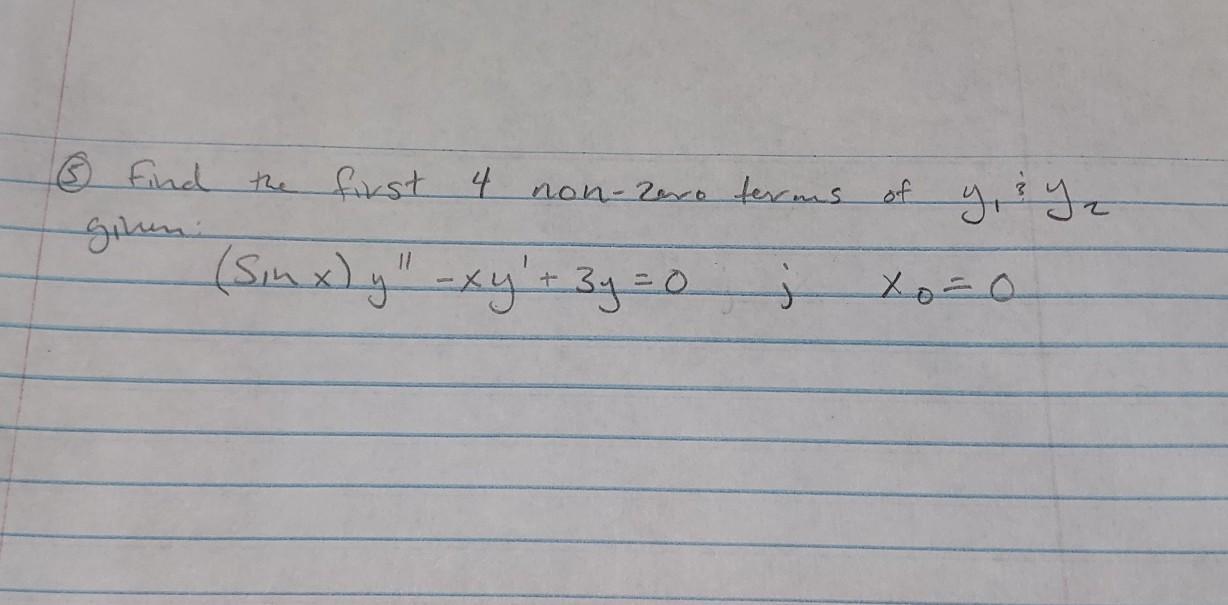 ⑤ Find the first 4 non-zero terms of y₁ & y₂
given:
(Sin x) y'' - xy' + 3y = 0 ; x₀ = 0